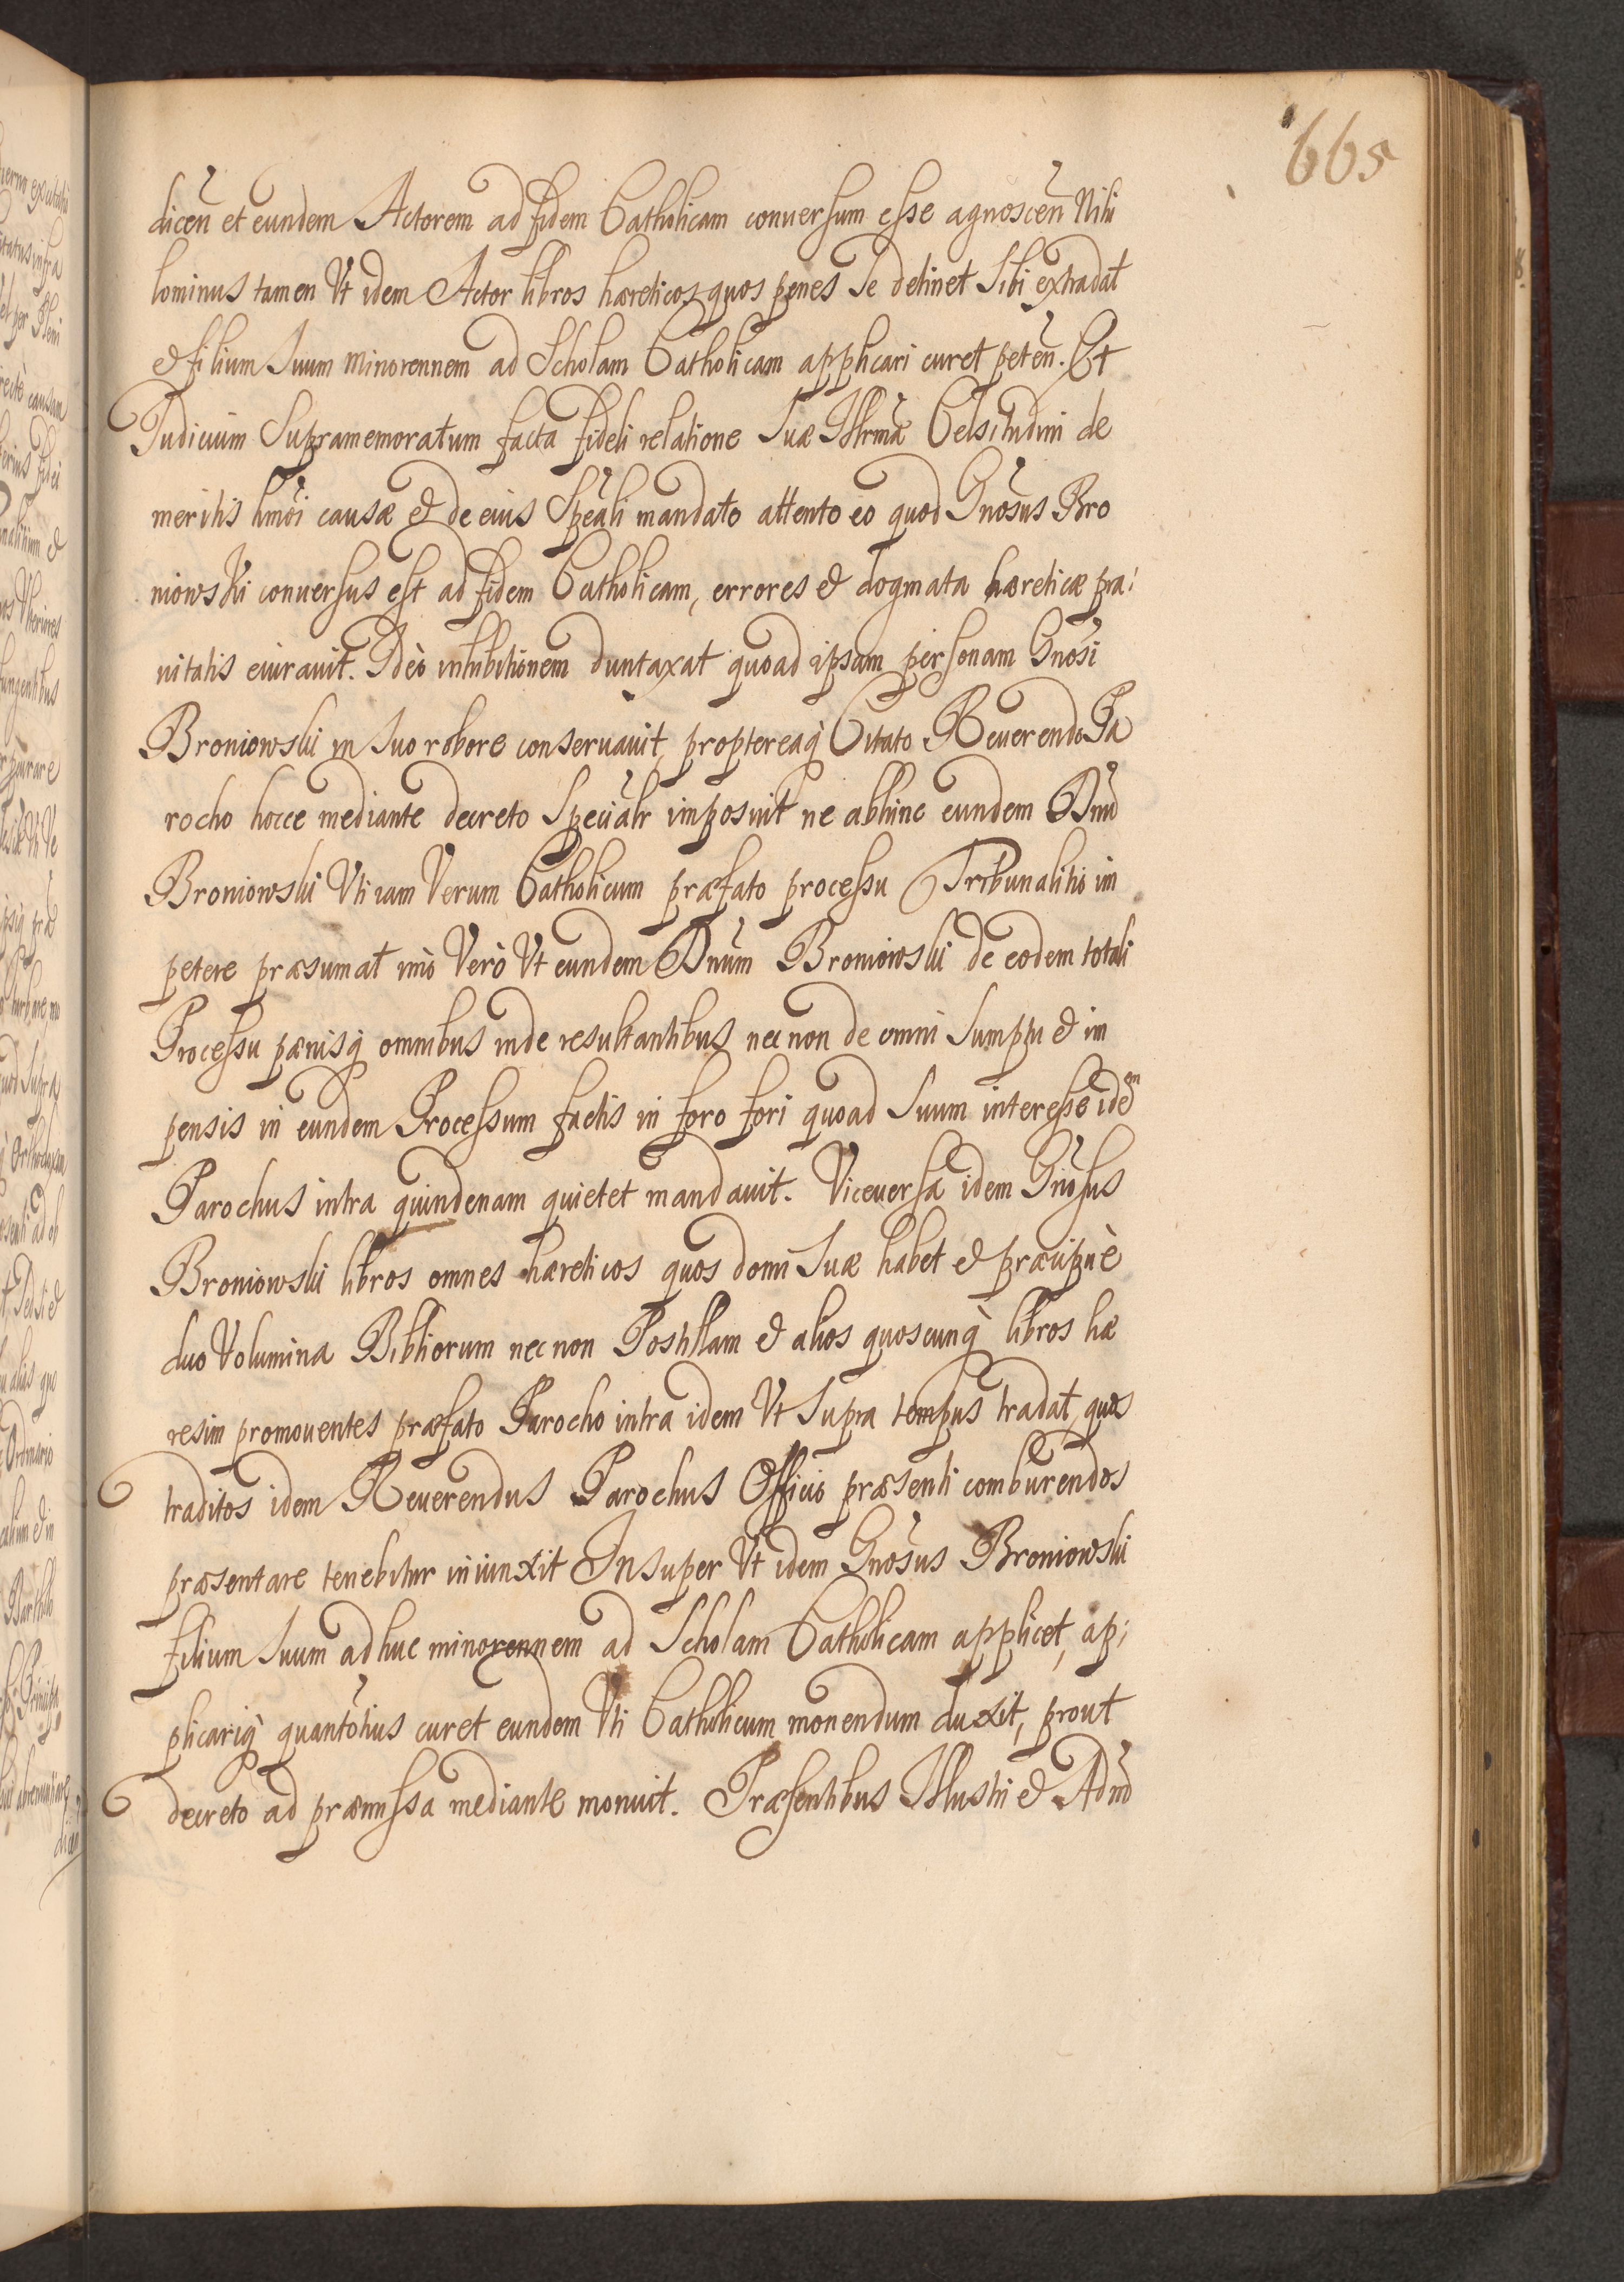 665
dicen̄ et eundem Actorem ad fidem Catholicam conuersum esse agnoscen̄ Nihi
lominus tamen Vt idem Actor libros hæreticos quos penes Se detinet Sibi extradat
et filium Suum Minorennem ad Scholam Catholicam applicari curet peten̄. Et
Iudicium Supramemoratum facta fideli relatione Suæ Illrmæ Celsitudini de
meritis hmōi causæ et de eius Spēali mandato attento eo quod Gnōsus Bro
niowski conuersus est ad fidem Catholicam, errores et dogmata hæreticæ pra:
uitatis eiurauit. Ideò inhibitionem duntaxat quoad ipsam personam Gnōsi
Broniowski in Suo robore conseruauit, proptereaq̀ Citato Reuerendo Pa
rocho hocce mediante decreto Speciālr imposuit ne abhinc eundem Dnū
Broniowski Vti iam Verum Catholicum præfato processu Tribunalitio im
petere præsumat imò Verò Vt eundem Dnūm Broniowski de eodem totali
Processu pænisq̀ omnibus inde resultantibus nec non de omni Sumptu et im
pensis in eundem Processum factis in foro fori quoad Suum interesse idem
Parochus intra quindenam quietet mandauit. Viceuersa idem Gnōsus
Broniowski libros omnes hæreticos quos domi Suæ habet et præcipuè
duo Volumina Bibliorum nec non Postillam et alios quoscunq̀ libros hæ
resim promouentes præfato Parocho intra idem Vt Supra tempus tradat, quos
traditos idem Reuerendus Parochus Officio præsenti comburendos
præsentare tenebitur iniunxit Insuper Vt idem Gnōsus Broniowski
filium Suum adhuc minorennem ad Scholam Catholicam applicet, ap:
plicariq̀ quantōtius curet eundem Vti Catholicum monendum duxit, prout
decreto ad præmissa mediante monuit. Præsentibus Illustri et Adm̄